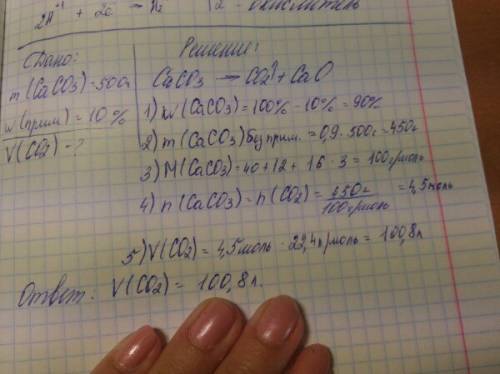 2H⁺¹ + 2e → H₂ | 2 - окислитель
Дано:
Решение:
m(CaCO3)=500г
CaCO3 → CO2↑ + CaO
w(прим.)=10%
1) w(CaCO3)=100%-10%=90%
V(CO2)-?
2) m(CaCO3) без прим.=0,9·500г=450г
3) M(CaCO3)=40+12+16·3=100г/моль
4) n(CaCO3)=n(CO2)=450г/100г/моль=4,5моль
5) V(CO2)=4,5моль·22,4л/моль=100,8л
Ответ: V(CO2)=100,8л.